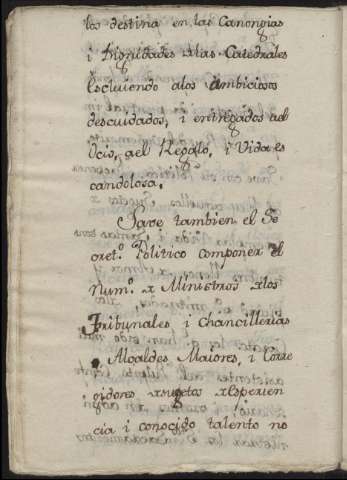 los destina en las Canongias
i Dignidades xlas Catedrales
Escluiendo alos Ambiciosos
descuidados, i entregados ael
Ocio, ael Regalo, i Vida es
candolosa.
Save tambien el Se
cret.º Politico componer el
Num.º x Ministros xlos
Tribunales i chancillerias
Alcaldes Maiores, i Corre
gidores xsugetos xEsperien
cia i conocido talento no